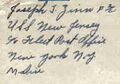 Joseph J. Zinn P.F.C.
U.S.S. New Jersey
℅ Fleet Post Office
New York N.Y.
Marine